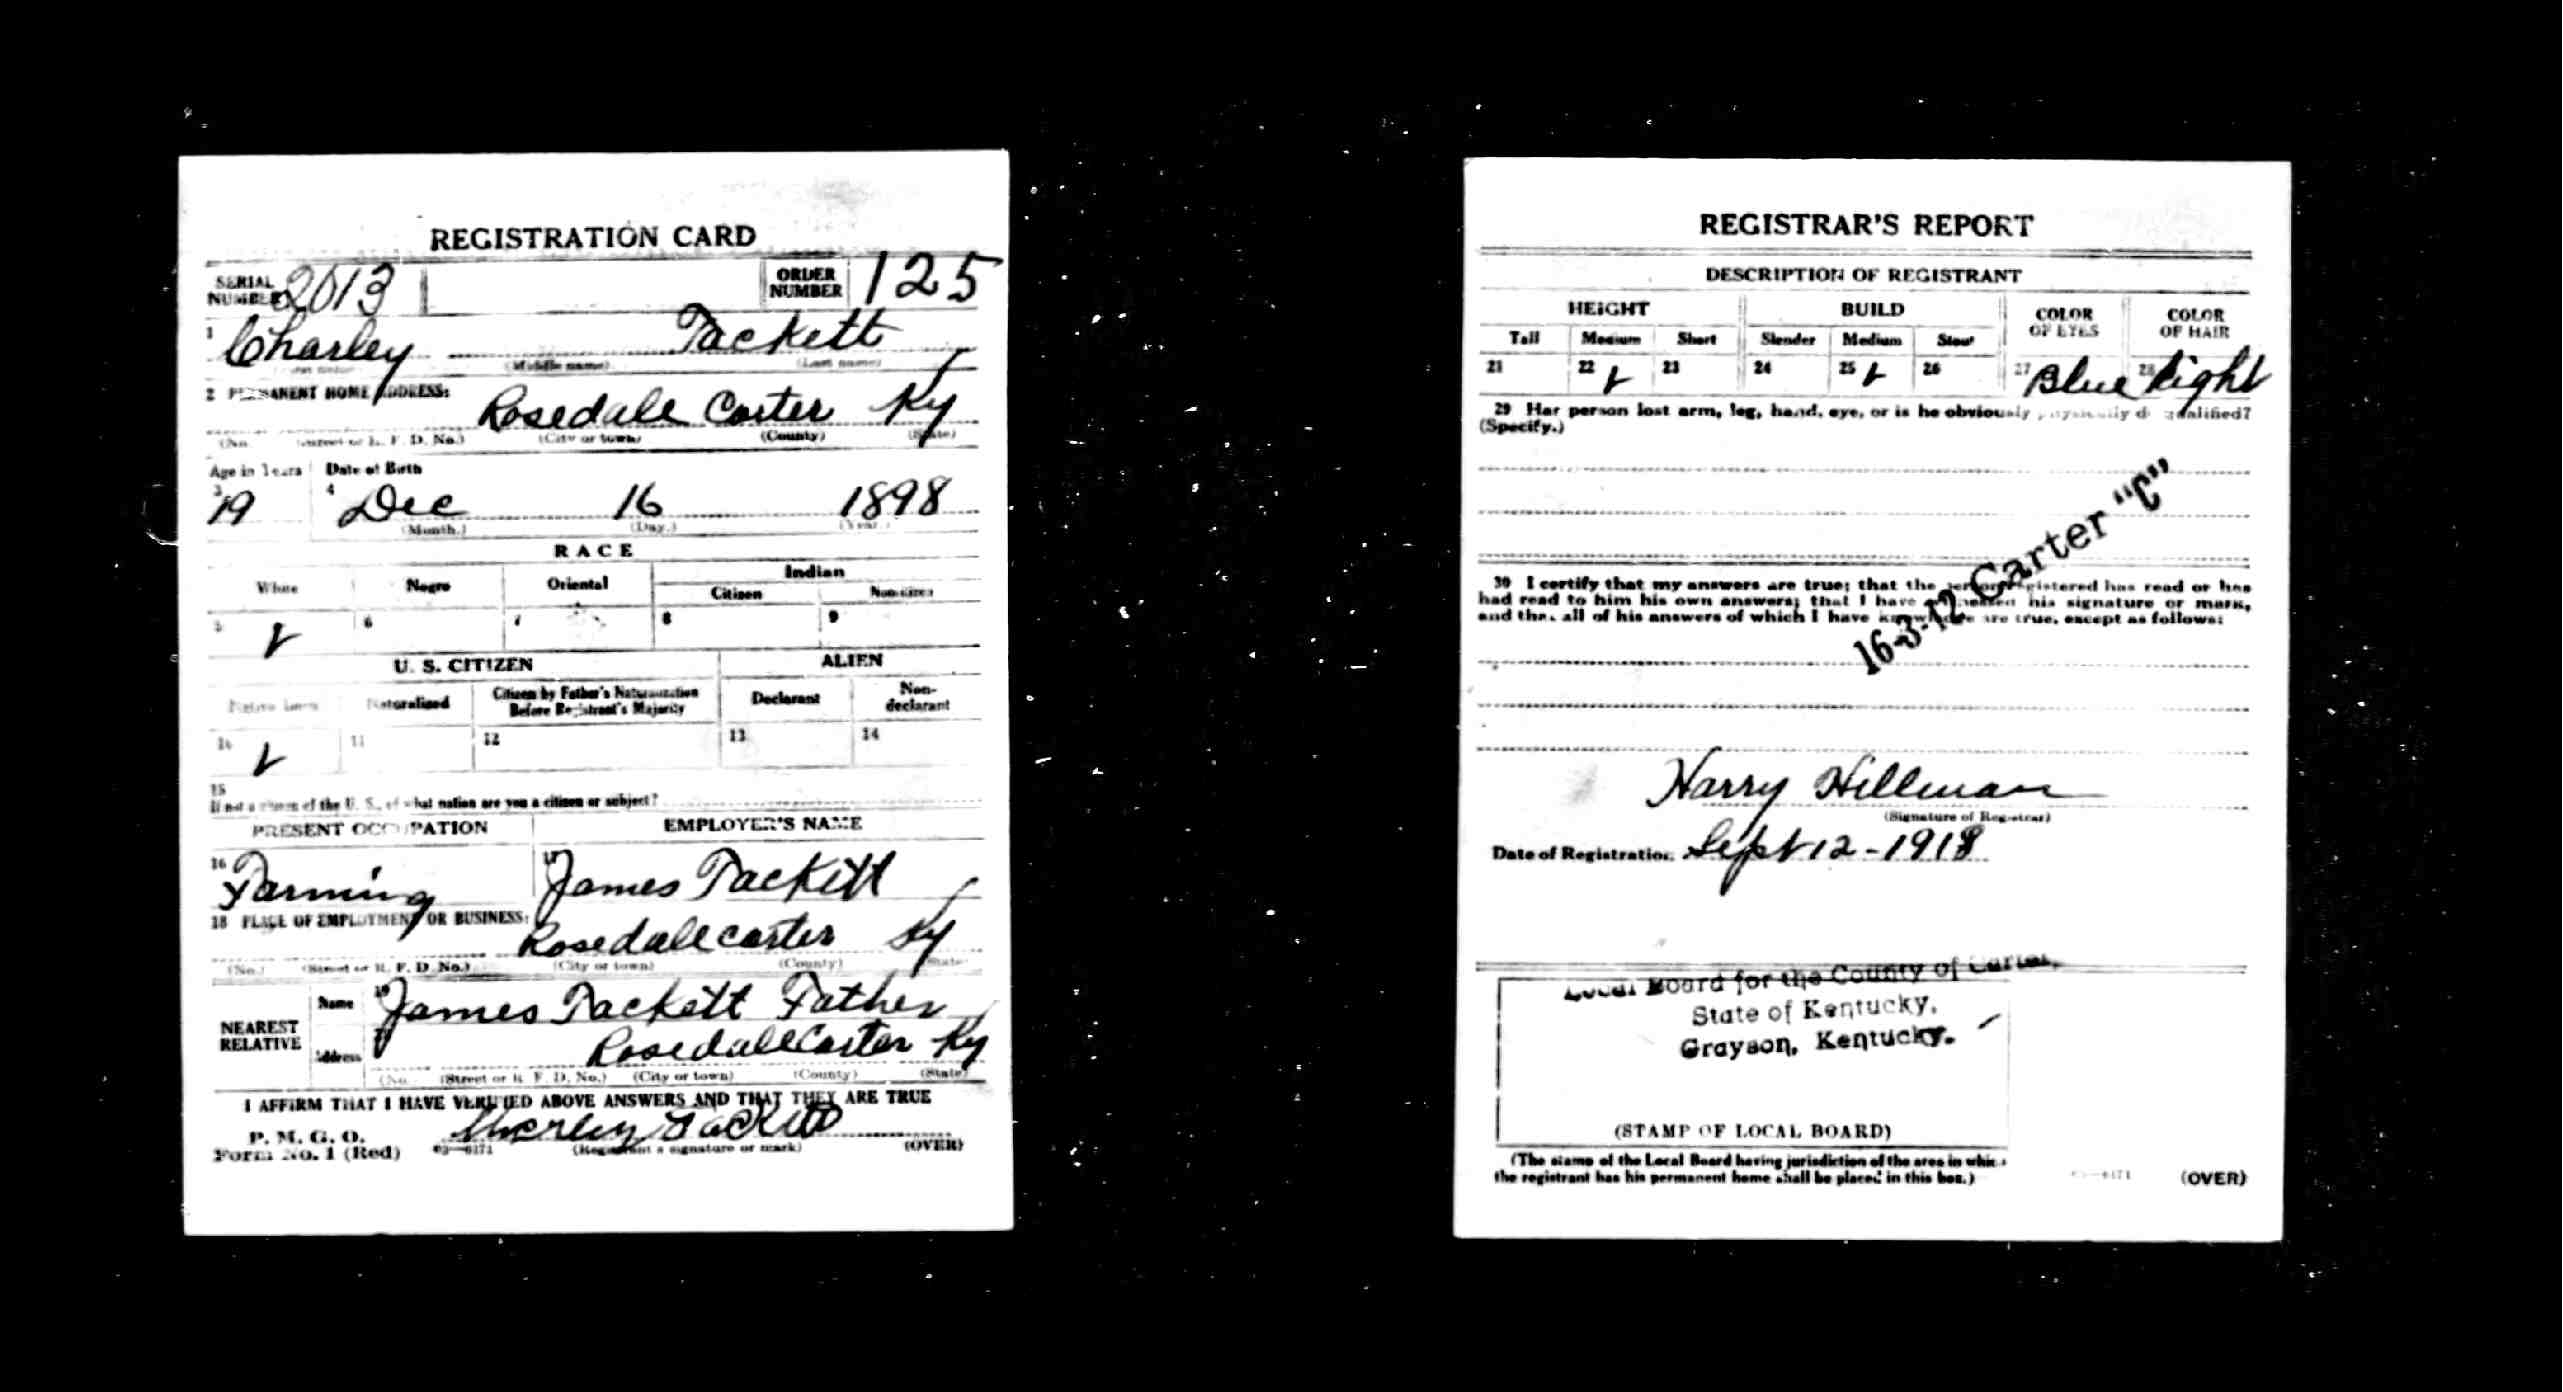 REGISTRATION CARD
SERIAL NUMBER 2013 ORDER NUMBER 125
1 Charley Tackett
(Middle name) (Last name)
2 PERMANENT HOME ADDRESS:
Rosedale Carter Ky
(No. (Street or R. F. D. No.) (City or town) (County) (State)
Age in Years Date of Birth
3 19 4 Dec 16 1898
(Month.) (Day.) (Year.)
RACE
White Negro Oriental Indian
Citizen Noncitizen
5 6 7 8 9
U. S. CITIZEN ALIEN
Native born Naturalized Citizen by Father's Naturalization Before Registrant's Majority Declarant Non-declarant
10 11 12 13 14
15
If not a citizen of the U. S., of what nation are you a citizen or subject?
PRESENT OCCUPATION EMPLOYER'S NAME
16 Farming 17 James Tackett
18 PLACE OF EMPLOYMENT OR BUSINESS:
Rosedale Carter Ky
(No.) (Street or R. F. D. No.) (City or town) (County) (State
NEAREST RELATIVE
Name 19 James Tackett Father
Address Rosedale Carter Ky
(No. (Street or R. F. D. No.) (City or town) (County) (State)
I AFFIRM THAT I HAVE VERIFIED ABOVE ANSWERS AND THAT THEY ARE TRUE
P. M. G. O.
Form No. 1 (Red) 03—6171 Charley Tackett
(Registrant's signature or mark) (OVER)
REGISTRAR'S REPORT
DESCRIPTION OF REGISTRANT
HEIGHT BUILD COLOR OF EYES COLOR OF HAIR
Tall Medium Short Slender Medium Stout
21 22 23 24 25 26 27 Blue 28 Light
29 Has person lost arm, leg, hand, eye, or is he obviously physically disqualified?
(Specify.)
16-3-12 Carter "C"
30 I certify that my answers are true; that the person registered has read or has
had read to him his own answers; that I have witnessed his signature or mark,
and that all of his answers of which I have knowledge are true, except as follows:
Harry Hillman
(Signature of Registrar)
Date of Registration Sept 12-1918
Local Board for the County of Carter,
State of Kentucky,
Grayson, Kentucky.
(STAMP OF LOCAL BOARD)
(The stamp of the Local Board having jurisdiction of the area in which
the registrant has his permanent home shall be placed in this box.)
03—6171 (OVER)